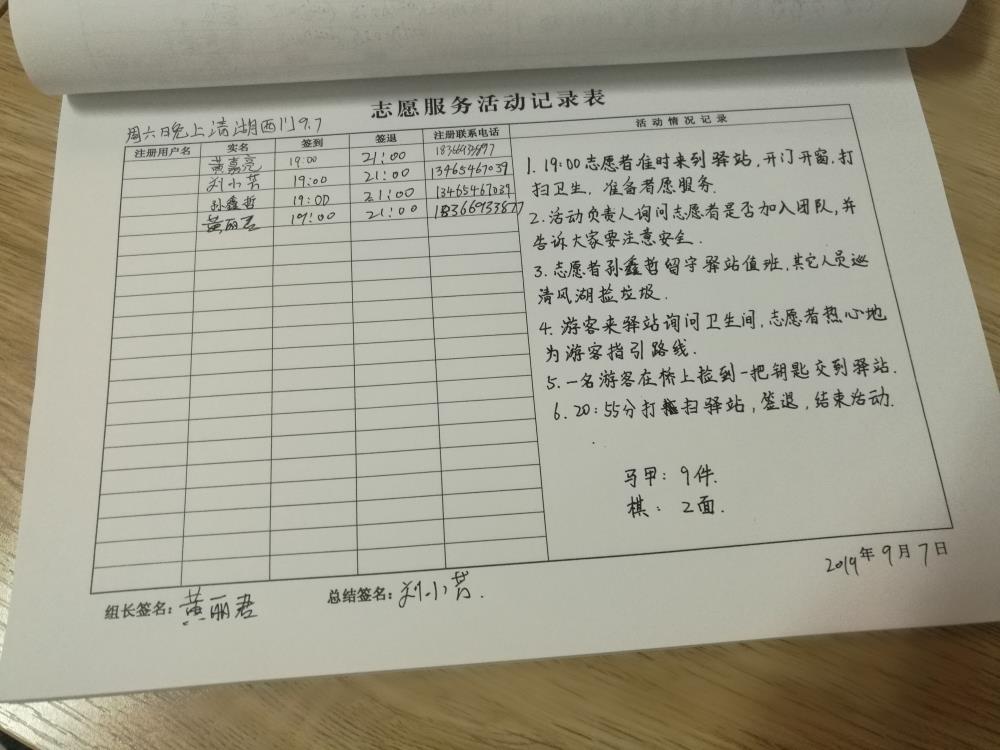 志愿服务活动记录表
周六晚上清湖西门9.7
注册用户名 实名 签到 签退 注册联系电话 活动情况记录
黄嘉亮 19:00 21:00
刘小芳 19:00 21:00 13465467039
孙鑫哲 19:00 21:00 13465467039
黄丽君 19:00 21:00 18366933877
1. 19:00志愿者准时来到驿站,开门开窗,打
扫卫生,准备者愿服务.
2. 活动负责人询问志愿者是否加入团队,并
告诉大家要注意安全.
3. 志愿者孙鑫哲留守驿站值班,其它人员巡
清风湖捡垃圾.
4. 游客来驿站询问卫生间,志愿者热心地
为游客指引路线.
5. 一名游客在桥上捡到一把钥匙交到驿站.
6. 20:55分打扫驿站,签退,结束活动.
马甲: 9件.
棋: 2面.
2019年9月7日
组长签名: 黄丽君 总结签名: 刘小芳.